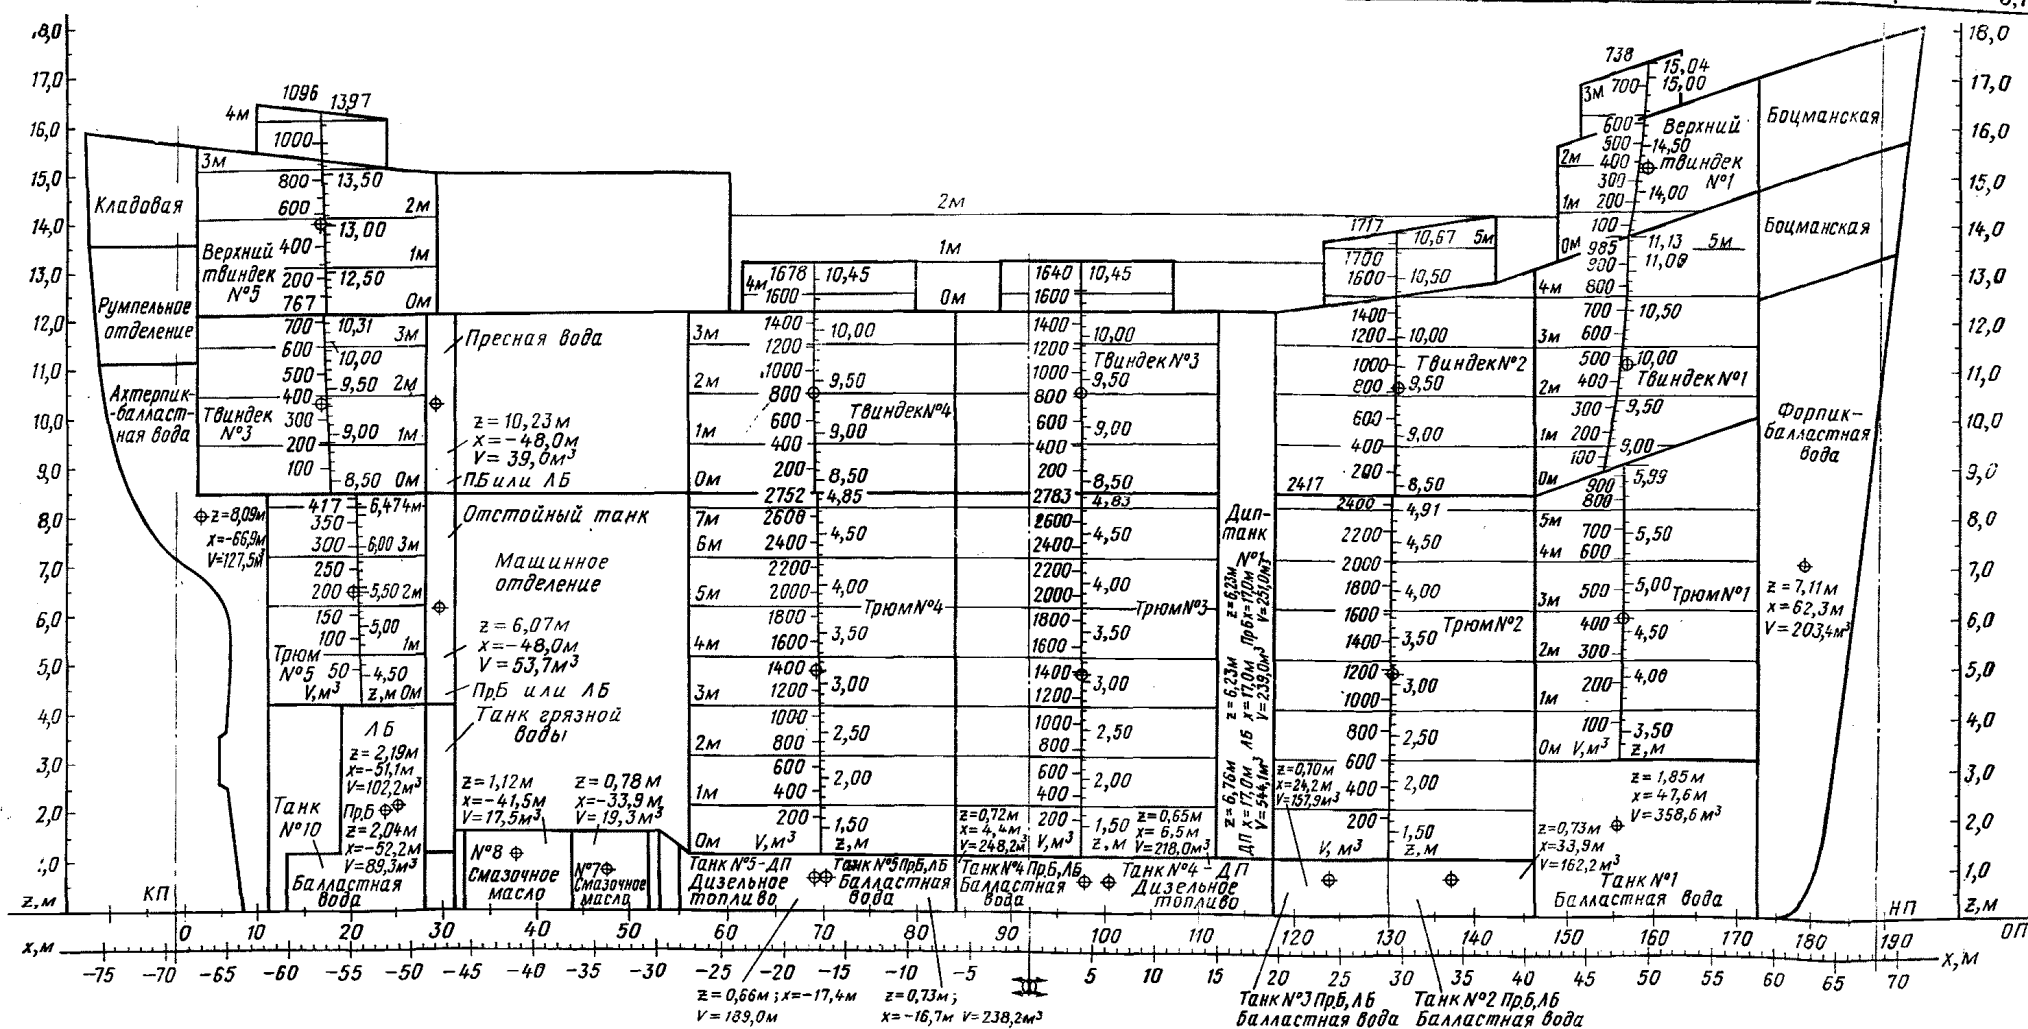 18,0
17,0
16,0
15,0
14,0
13,0
12,0
11,0
10,0
9,0
8,0
7,0
6,0
5,0
4,0
3,0
2,0
1,0
z,м
x,м
Кладовая
Румпельное
отделение
Ахтерпик-
-балласт-
ная вода
z=8,09м
x=-66,9м
V=127,5м³
КП
1096
1397
4м
1000
3м
800
13,50
600
2м
13,00
400
1м
200
12,50
767
0м
Верхний
твиндек
№5
700
10,31
3м
600
10,00
500
9,50
2м
400
300
200
9,00
1м
100
8,50
0м
Твиндек
№3
417
6,474м
350
300
6,00
3м
250
200
5,50
2м
150
5,00
100
1м
50
4,50
V,м³
z,м
0м
Трюм
№5
ЛБ
z=2,19м
x=-51,1м
V=102,2м³
Пр,Б
z=2,04м
x=-52,2м
V=89,3м³
Танк
№10
Балластная
вода
Пресная вода
z=10,23м
x=-48,0м
V=39,0м³
ПБ или ЛБ
Отстойный танк
Машинное
отделение
z=6,07м
x=-48,0м
V=53,7м³
Пр,Б или ЛБ
Танк грязной
воды
z=1,12м
x=-41,5м
V=17,5м³
z=0,78м
x=-33,9м
V=19,3м³
№8
Смазочное
масло
№7
Смазочное
масло
2м
1м
0м
4м
1678
10,45
1600
3м
1400
10,00
1200
2м
1000
9,50
800
Твиндек№4
600
1м
9,00
400
200
0м
8,50
2752
4,85
7м
2600
4,50
6м
2400
2200
4,00
5м
2000
1800
Трюм№4
3,50
4м
1600
1400
3м
3,00
1200
1000
2,50
2м
800
600
2,00
1м
400
200
1,50
0м
V,м³
z,м
Танк №5-ДП
Дизельное
топливо
Танк №5 Пр,Б,ЛБ
Балластная
вода
z=0,72м
x=4,4м
V=248,2м³
1640
10,45
1600
1400
10,00
1200
Твиндек№3
1000
9,50
800
600
9,00
400
200
8,50
2783
4,83
2600
4,50
2400
2200
4,00
2000
1800
Трюм№3
3,50
1600
1400
3,00
1200
1000
2,50
800
600
2,00
400
200
1,50
V,м³
z,м
z=0,65м
x=6,5м
V=218,0м³
Танк №4 Пр,Б,ЛБ
Балластная
вода
Танк №4-ДП
Дизельное
топливо
Дип-
танк
№1
ДП
z=6,76м
x=17,0м
V=544,1м³
ЛБ
z=6,23м
x=17,0м
V=239,0м³
Пр,Б
z=6,23м
x=17,0м
V=251,0м³
1717
10,67
5м
1700
1600
10,50
1400
1200
10,00
1000
Твиндек№2
800
9,50
600
9,00
400
200
8,50
2417
2400
4,91
2200
4,50
2000
1800
4,00
1600
1400
3,50
Трюм№2
1200
3,00
1000
800
2,50
600
400
2,00
200
1,50
V,м³
z,м
z=0,70м
x=24,2м
V=157,9м³
738
15,04
3м
700
15,00
600
Верхний
твиндек
№1
500
14,50
2м
400
300
14,00
1м
200
100
0м
985
11,13
5м
900
11,00
4м
800
700
10,50
600
3м
500
10,00
Твиндек№1
2м
400
300
9,50
1м
200
9,00
100
0м
900
5,99
800
5м
700
5,50
4м
600
500
5,00
Трюм№1
3м
400
4,50
2м
300
200
4,00
1м
100
3,50
0м
V,м³
z,м
z=1,85м
x=47,6м
V=358,6м³
z=0,73м
x=33,9м
V=162,2м³
Танк №1
Балластная вода
Боцманская
Боцманская
Форпик-
балластная
вода
z=7,11м
x=62,3м
V=203,4м³
НП
18,0
17,0
16,0
15,0
14,0
13,0
12,0
11,0
10,0
9,0
8,0
7,0
6,0
5,0
4,0
3,0
2,0
1,0
z,м
ОП
0 10 20 30 40 50 60 70 80 90 100 110 120 130 140 150 160 170 180 190
-75 -70 -65 -60 -55 -50 -45 -40 -35 -30 -25 -20 -15 -10 -5 5 10 15 20 25 30 35 40 45 50 55 60 65 70
x,м
z=0,66м; x=-17,4м
V=189,0м
z=0,73м;
x=-16,7м V=238,2м³
Танк №3 Пр,Б,ЛБ
Балластная вода
Танк №2 Пр,Б,ЛБ
Балластная вода